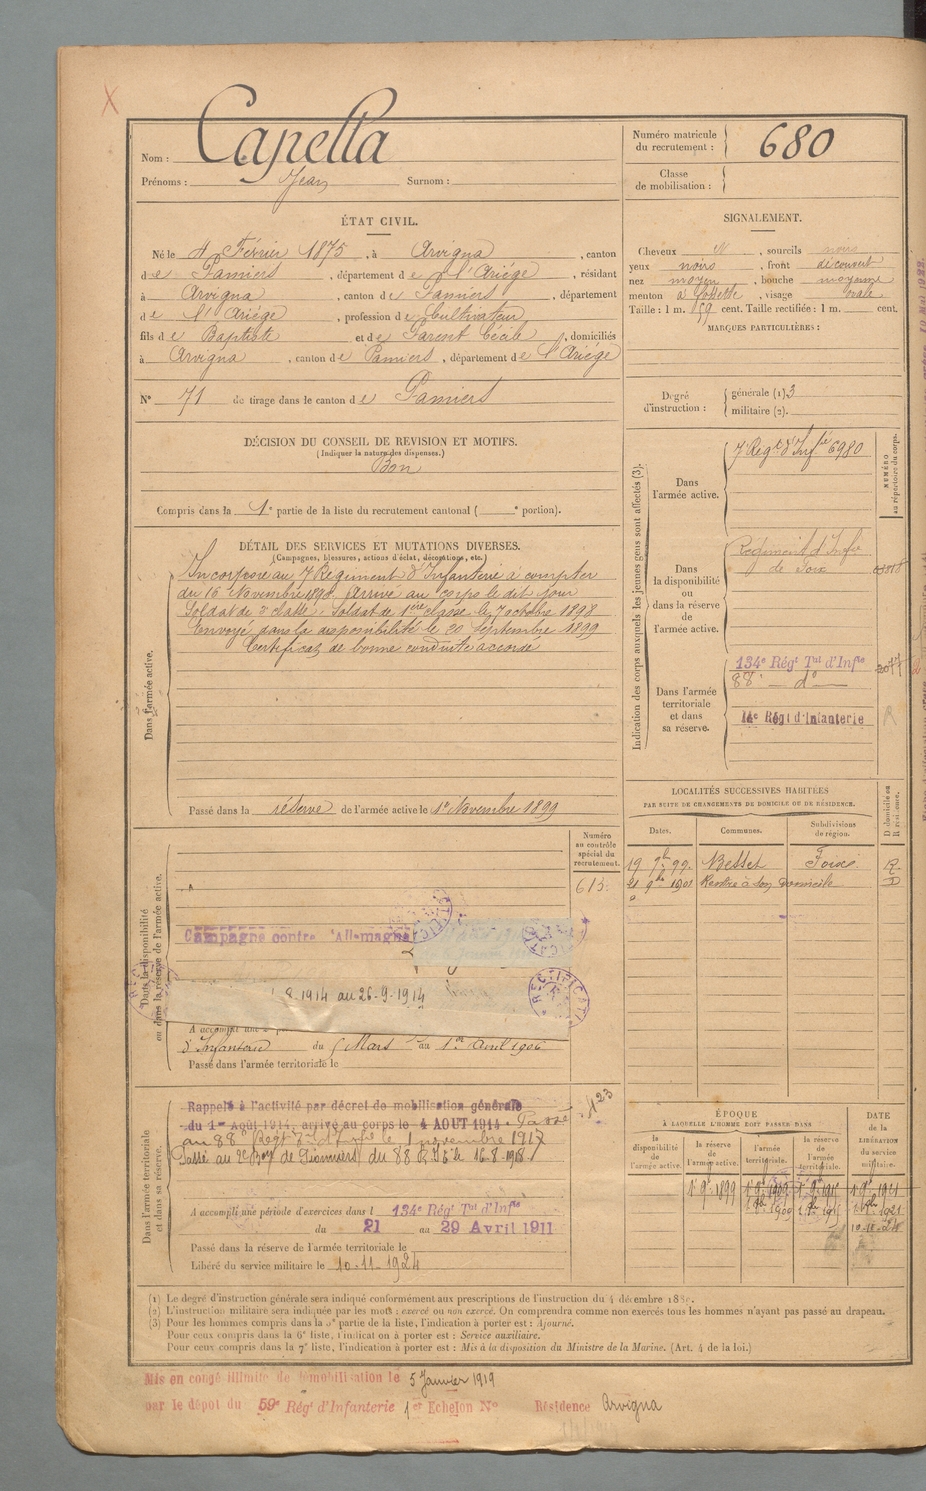 Capella
Nom :
Prénoms : Jean Surnom :
Numéro matricule
du recrutement : 680
Classe
de mobilisation :
ÉTAT CIVIL.
Né le 4 Février 1875, à Arvigna, canton
de Pamiers, département de l'Ariège, résidant
à Arvigna, canton de Pamiers, département
de l'Ariège, profession de Cultivateur
fils de Baptiste et de Parent Cécile, domiciliés
à Arvigna, canton de Pamiers, département de l'Ariège
N° 71 de tirage dans le canton de Pamiers
DÉCISION DU CONSEIL DE REVISION ET MOTIFS.
(Indiquer la nature des dispenses.)
Bon
Compris dans la 1e partie de la liste du recrutement cantonal ( e portion).
SIGNALEMENT.
Cheveux N, sourcils noirs
yeux noirs, front découvert
nez moyen, bouche moyenne
menton à fossette, visage ovale
Taille : 1 m. 59 cent. Taille rectifiée : 1 m. cent.
MARQUES PARTICULIÈRES :
Degré
d'instruction :
générale (1) 3
militaire (2).
DÉTAIL DES SERVICES ET MUTATIONS DIVERSES.
(Campagnes, blessures, actions d'éclat, décorations, etc.)
Dans l'armée active.
Incorporé au 7e Régiment d'Infanterie à compter
du 16 Novembre 1896. Arrivé au corps le dit jour
Soldat de 2e classe. Soldat de 1ère classe le 7 octobre 1898
Envoyé dans la disponibilité le 20 Septembre 1899
Certificat de bonne conduite accordé
Passé dans la réserve de l'armée active le 1er Novembre 1899
Indication des corps auxquels les jeunes gens sont affectés (3).
NUMÉRO
au répertoire du corps.
Dans
l'armée active.
7e Régt d'Infie 6980
Dans
la disponibilité
ou
dans la réserve
de
l'armée active.
Régiment d'Infie
de Foix
Dans l'armée
territoriale
et dans
sa réserve.
134e Régt Tal d'Infie 2077
88e do
14e Régt d'Infanterie R
LOCALITÉS SUCCESSIVES HABITÉES
PAR SUITE DE CHANGEMENTS DE DOMICILE OU DE RÉSIDENCE.
Dates.
Communes.
Subdivisions
de région.
D domicile ou
R résidence.
19 7b 99. Besset Foix R
21 9b 1901 Rentre à son domicile D
Dans la disponibilité
ou dans la réserve de l'armée active.
Numéro
au contrôle
spécial du
recrutement.
615.
Campagne contre l'Allemagne
8.1914 au 26-9-1914
RECTIFICATI
d'Infanterie du 5 Mars au 1er Avril 1906
Passé dans l'armée territoriale le
Dans l'armée territoriale
et dans sa réserve.
Rappelé à l'activité par décret de mobilisation générale
du 1er Août 1914, arrivé au corps le 4 AOUT 1914. Passé
au 88e Régt Tal d'Infie le 1 novembre 1917
Passé au 2e Bon de Pionniers du 88 R.I.T. le 16.8.1918
A accompli une période d'exercices dans l 134e Régt Tal d'Infie
du 21 au 29 Avril 1911
Passé dans la réserve de l'armée territoriale le
Libéré du service militaire le 10-11-1924
ÉPOQUE
À LAQUELLE L'HOMME DOIT PASSER DANS
la
disponibilité
de
l'armée active.
la réserve
de
l'armée active.
l'armée
territoriale.
la réserve
de
l'armée
territoriale.
DATE
de la
LIBÉRATION
du service
militaire.
1er 9b 1899 1er 9b 1909 1er 9b 1915 1er 9b 1921
10-11-24
(1) Le degré d'instruction générale sera indiqué conformément aux prescriptions de l'instruction du 4 décembre 1889.
(2) L'instruction militaire sera indiquée par les mots : exercé ou non exercé. On comprendra comme non exercés tous les hommes n'ayant pas passé au drapeau.
(3) Pour les hommes compris dans la 5e partie de la liste, l'indication à porter est : Ajourné.
Pour ceux compris dans la 6e liste, l'indication à porter est : Service auxiliaire.
Pour ceux compris dans la 7e liste, l'indication à porter est : Mis à la disposition du Ministre de la Marine. (Art. 4 de la loi.)
Mis en congé illimité de démobilisation le 5 Janvier 1919
par le dépot du 59e Régt d'Infanterie 1er Echelon N° Résidence Arvigna